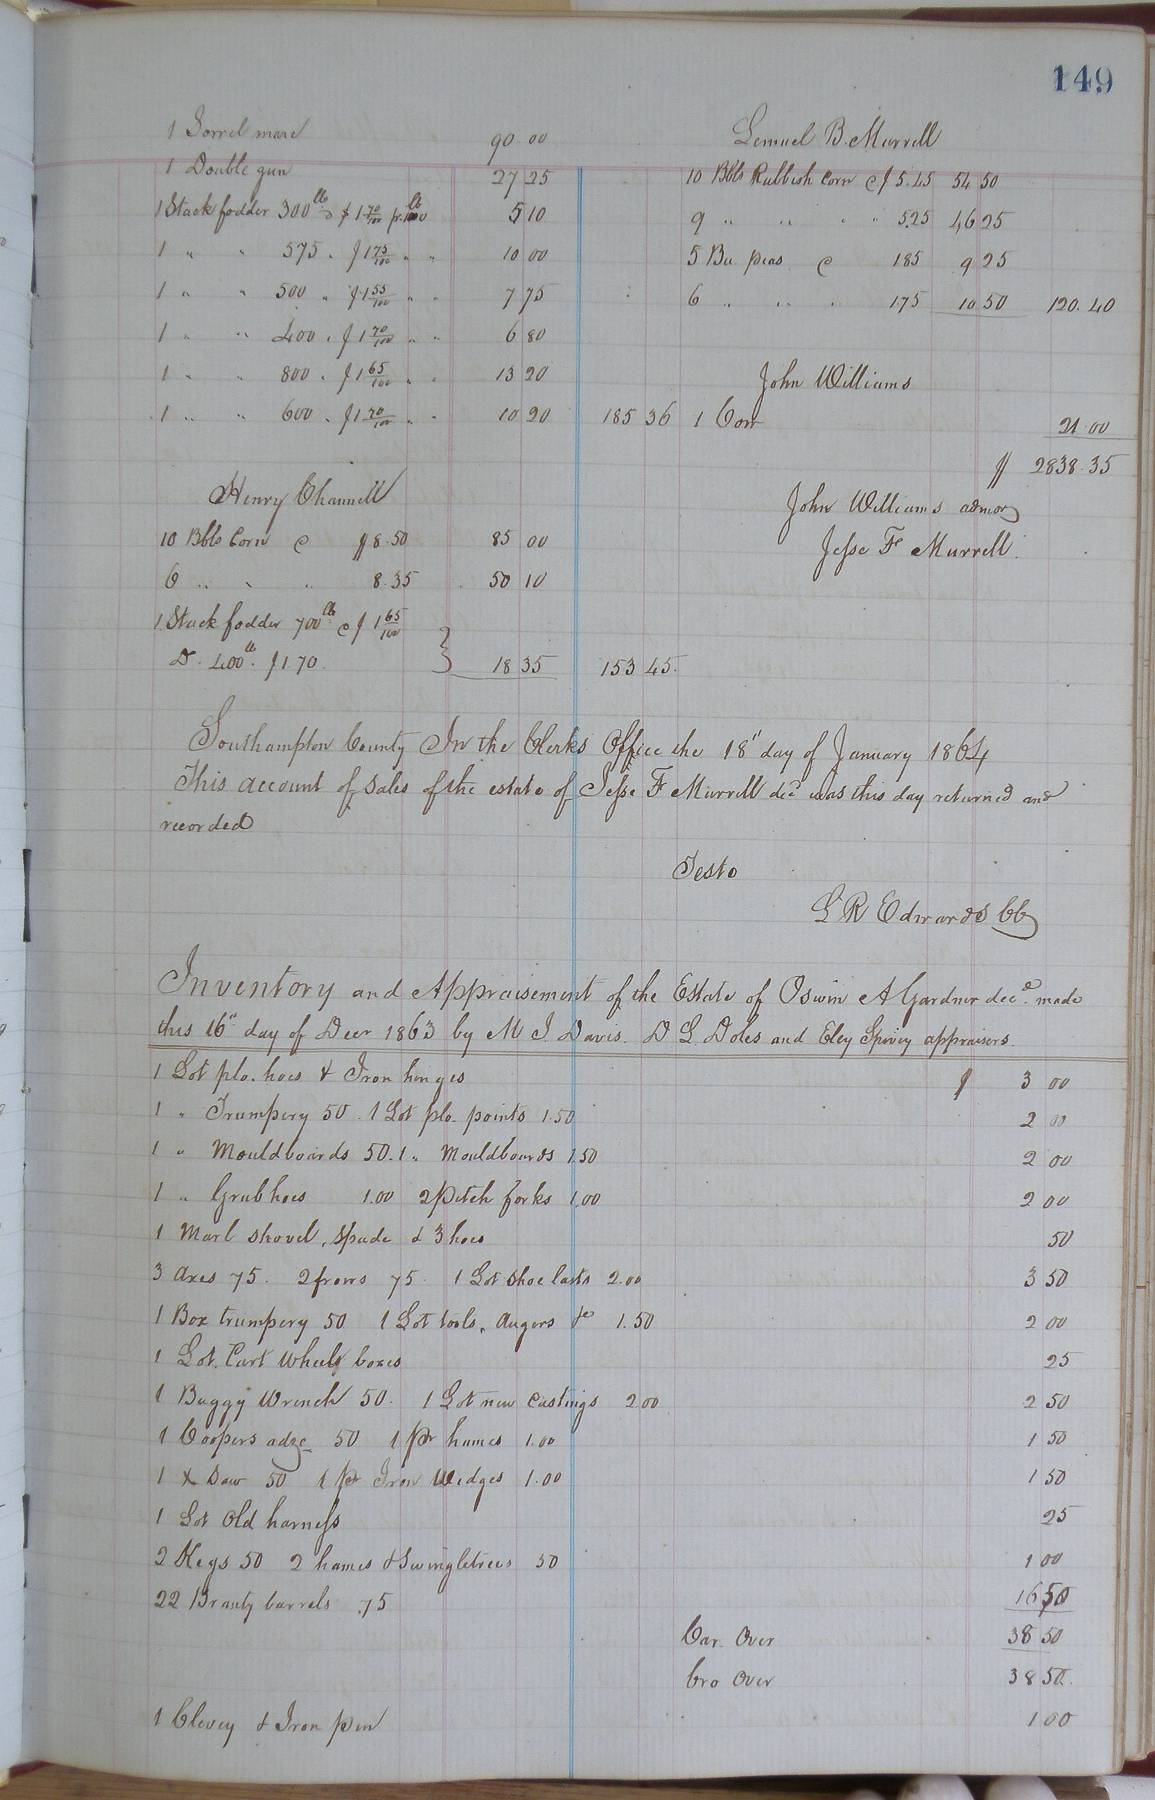 149
1 Sorrel mare 90 00
1 Double gun 27 25
1 Stack fodder 300 lb @ $1 70/100 pr. lb 5 10
1 " " 575 " $1 75/100 " " 10 00
1 " " 500 " $1 55/100 " " 7 75
1 " " 400 " $1 70/100 " " 6 80
1 " " 800 " $1 65/100 " " 13 20
1 " " 600 " $1 70/100 " " 10 20 185 36
Henry Channell
10 Bbls Corn @ $8.50 85 00
6 " " " 8.35 50 10
1 Stack fodder 700 lb @ $1 65/100
Do. 400 lb. $1.70 } 18 35 153 45
Lemuel B. Murrell
10 Bbls Rubbish Corn @ $5.45 54 50
9 " " " " 5.25 46 25
5 Bu peas @ 185 9 25
6 " " " 175 10 50 120.40
John Williams
1 Cow 21.00
$ 2838.35
John Williams admor
Jesse F Murrell
Southampton County In the Clerks Office the 18" day of January 1864
This account of sales of the estate of Jesse F Murrell decd was this day returned and
recorded
Teste
L R Edwards CC
Inventory and Appraisement of the Estate of Oswin A Gardner decd. made
this 16" day of Decr 1863 by M I Davis. D L Doles and Eley Spivey appraisers.
1 Lot plo. hoes & Iron hinges $ 3 00
1 " Trumpery 50. 1 Lot plo. points 1.50 2 00
1 " Mouldboards 50. 1 " Mouldboards 1.50 2 00
1 " Grub hoes 1.00 2 Pitch forks 1.00 2 00
1 Marl shovel, Spade & 3 hoes 50
3 Axes 75. 2 frows 75. 1 Lot Shoe lasts 2.00 3 50
1 Box trumpery 50 1 Lot tools, Augers &c 1.50 2 00
1 Lot Cart Wheels boxes 25
1 Buggy Wrench 50. 1 Lot new Castings 2 00 2 50
1 Coopers adze 50 1 pr hames 1.00 1 50
1 X Saw 50 1 pr Iron Wedges 1.00 1 50
1 Lot Old harness 25
2 Kegs 50 2 hames & Swingletrees 50 1 00
22 Brandy barrels .75 16 50
Car. Over 38 50
Bro Over 38 50
1 Clevey & Iron pin 1 00